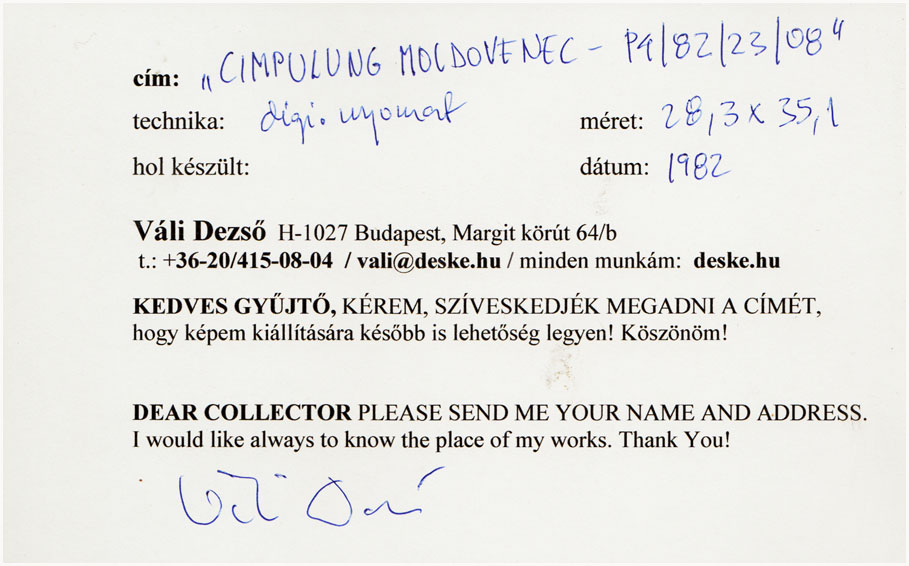 cím: „CIMPULUNG MOLDOVENEC – P4/82/23/08"
technika: digi. nyomat méret: 28,3 x 35,1
hol készült: dátum: 1982
Váli Dezső H-1027 Budapest, Margit körút 64/b
t.: +36-20/415-08-04 / vali@deske.hu / minden munkám: deske.hu
KEDVES GYŰJTŐ, KÉREM, SZÍVESKEDJÉK MEGADNI A CÍMÉT,
hogy képem kiállítására később is lehetőség legyen! Köszönöm!
DEAR COLLECTOR PLEASE SEND ME YOUR NAME AND ADDRESS.
I would like always to know the place of my works. Thank You!
Váli Dezső